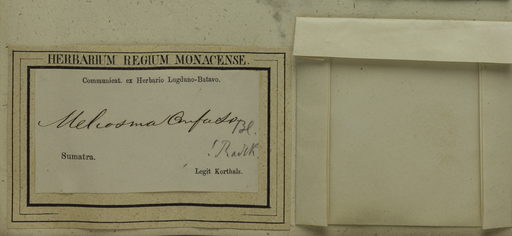 HERBARIUM REGIUM MONACENSE.
Communicat. ex Herbario Lugduno-Batavo.
Meliosma Bl.
! Radlk
Sumatra.
Legit Korthals.